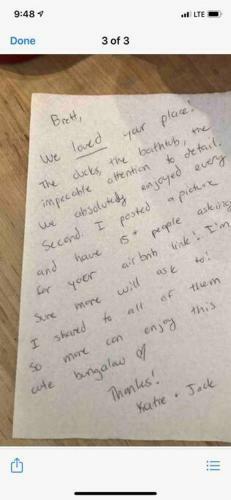 9:48
LTE
Done
3 of 3
Brett,
We loved your place!
The ducks, the bathtub, the
impecable attention to detail.
We absolutely enjoyed every
Second. I posted a picture
and have 15+ people asking
for your airbnb link! I'm
Sure more will ask to!
I shared to all of them
so more can enjoy this
cute bungalow
Thanks!
Katie + Jack